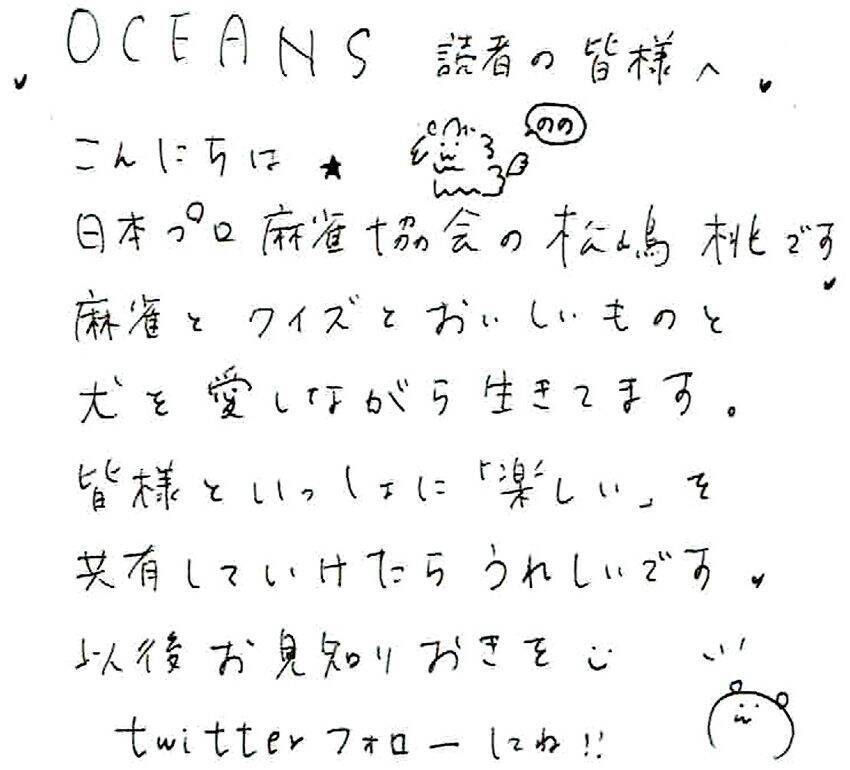 OCEANS 読者の皆様へ
こんにちは★
のの
日本プロ麻雀協会の松嶋桃です
麻雀とクイズとおいしいものと
犬を愛しながら生きてます。
皆様といっしょに「楽しい」を
共有していけたらうれしいです
以後お見知りおきを
twitterフォローしてね!!